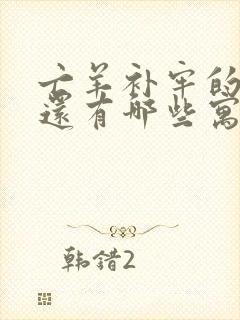 亡羊补牢的
还有哪些寓
韩错2